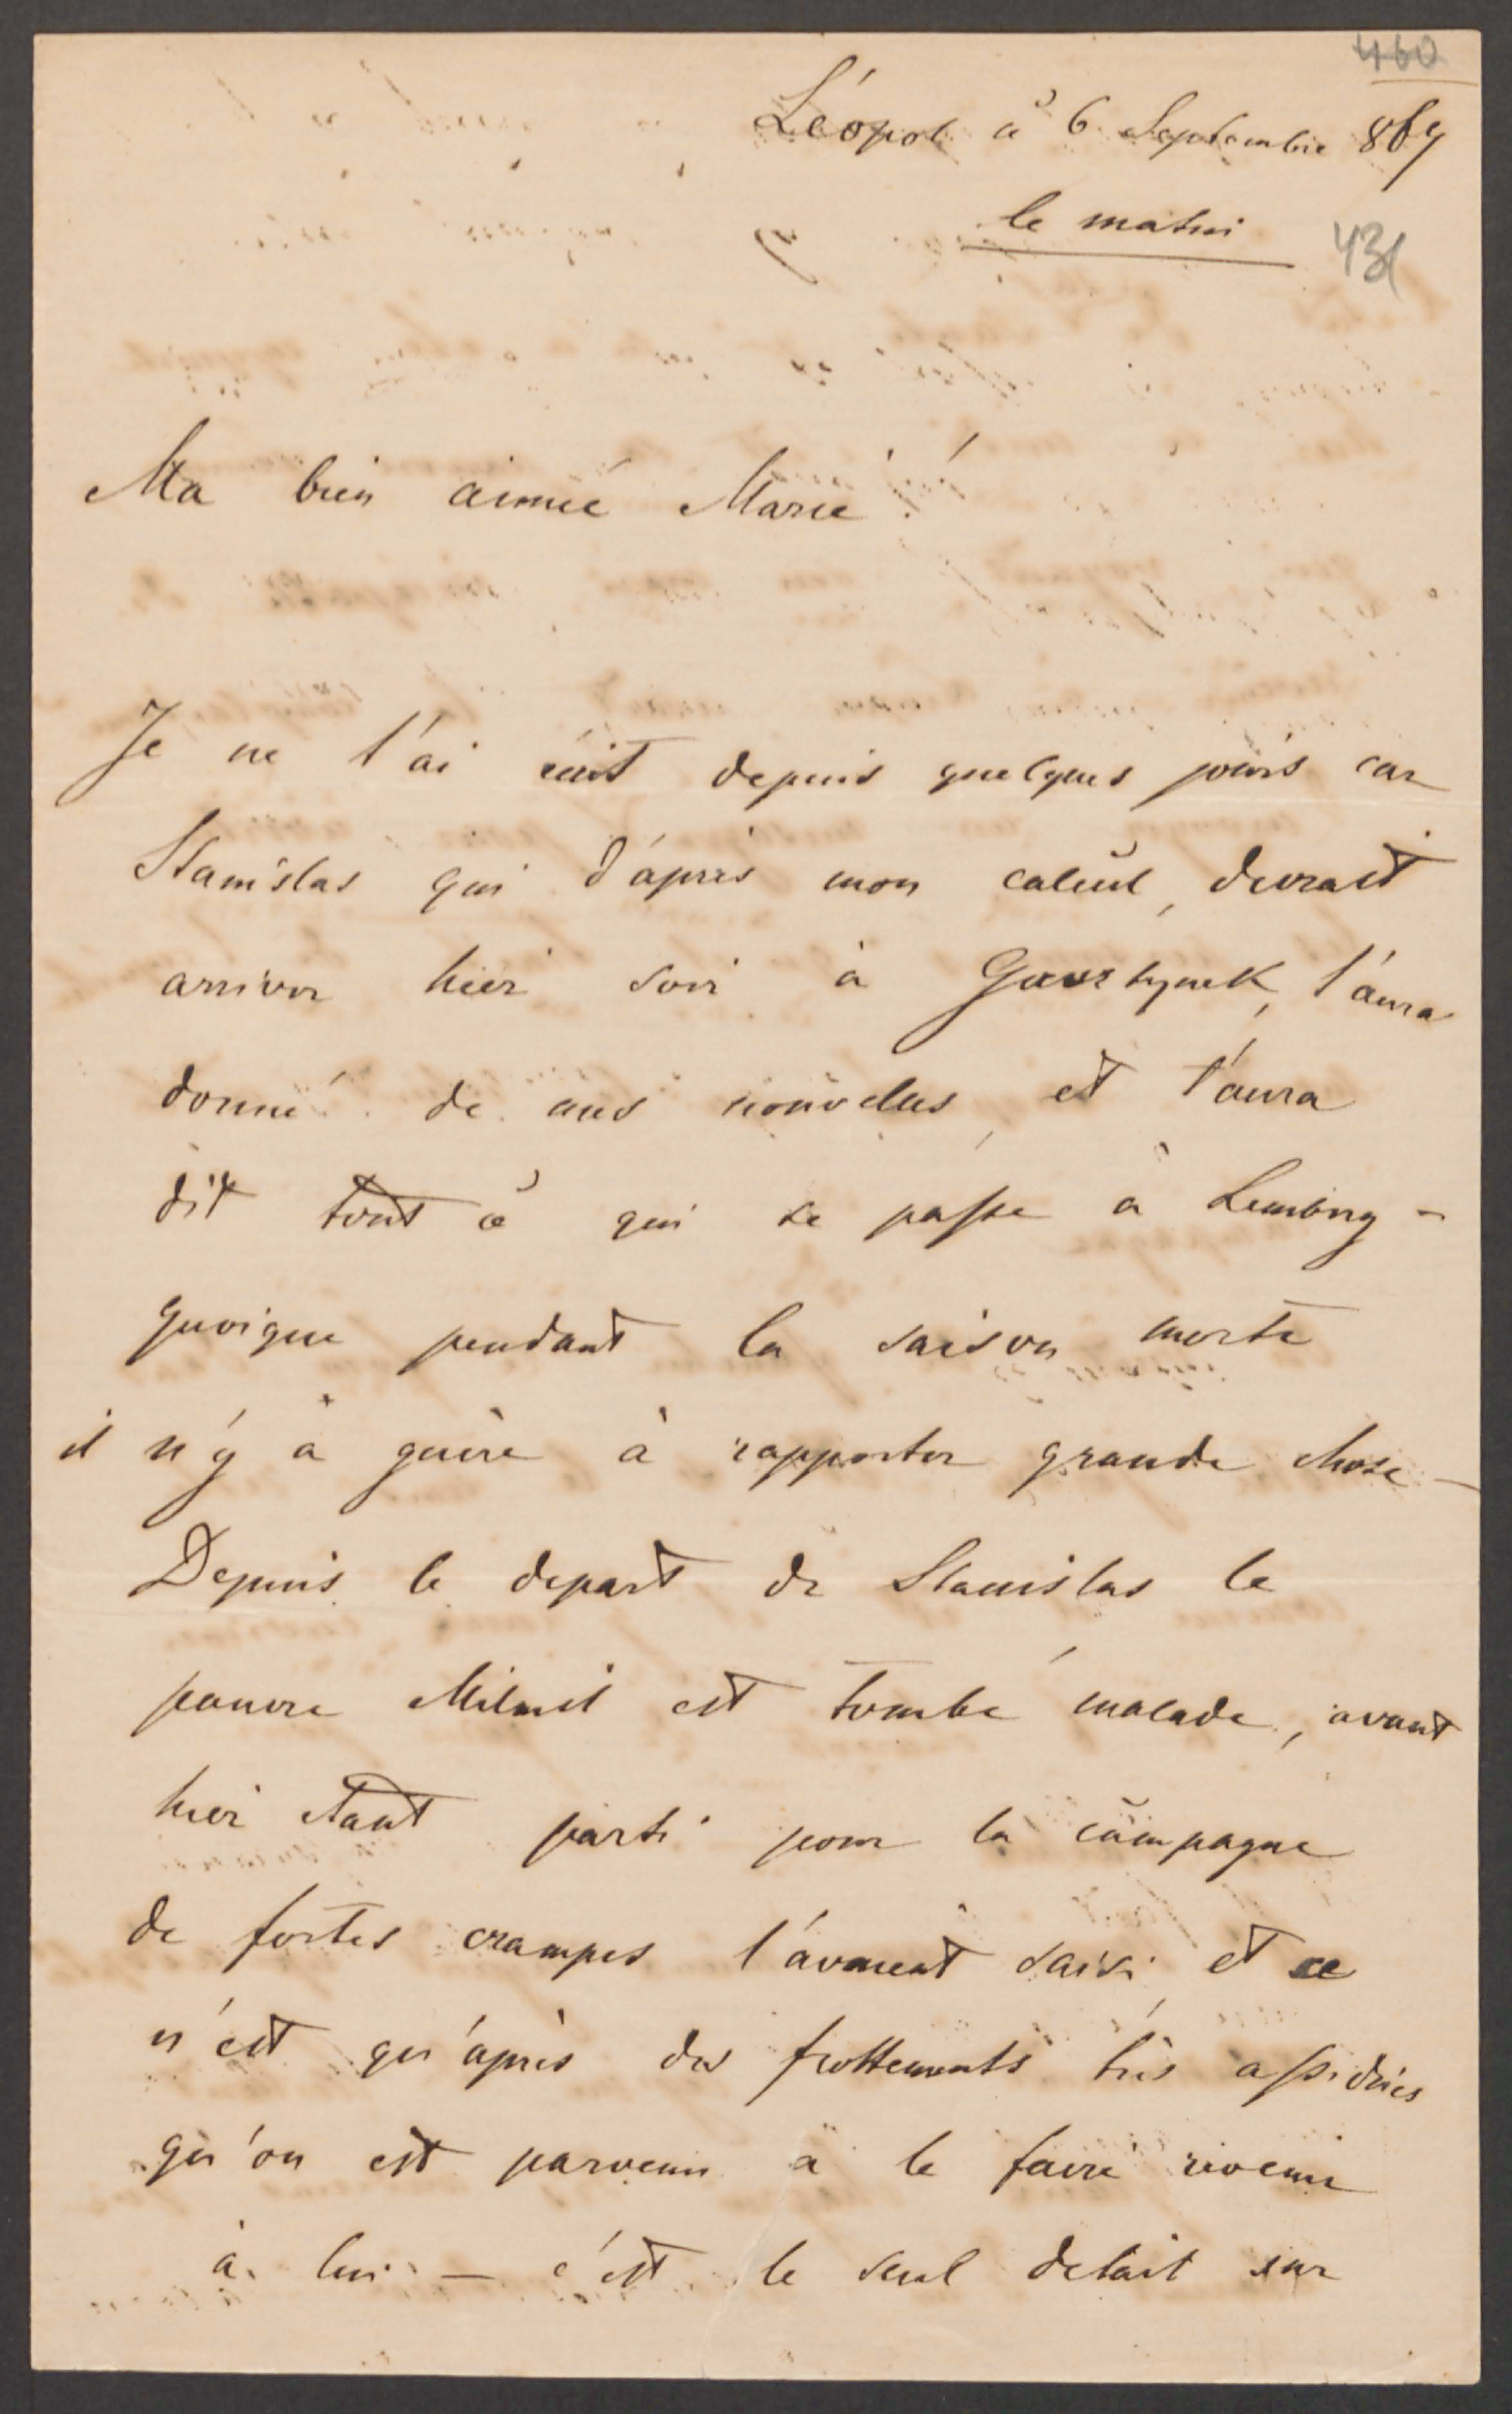 460
Léopol à 6 Septembre 869
le matin
431
Ma bien aimée Marie!
Je ne t'ai écrit depuis quelques jours car
Stanislas qui d'après mon calcul, devrait
arriver hier soir à t'aura
donné de mes nouvelles, et t'aura
dit tout ce qui se passe à Lemberg -
quoique pendant la saison morte
il n'y a guère à rapporter grande chose -
Depuis le depart de Stanislas le
pauvre est tombé malade, avant
hier étant parti pour la campagne
de fortes crampes l'avaient saisi, et ce
n'est qu'après des frottements très assidues
qu'on est parvenu à le faire revenir
à lui - c'est le seul detail sur